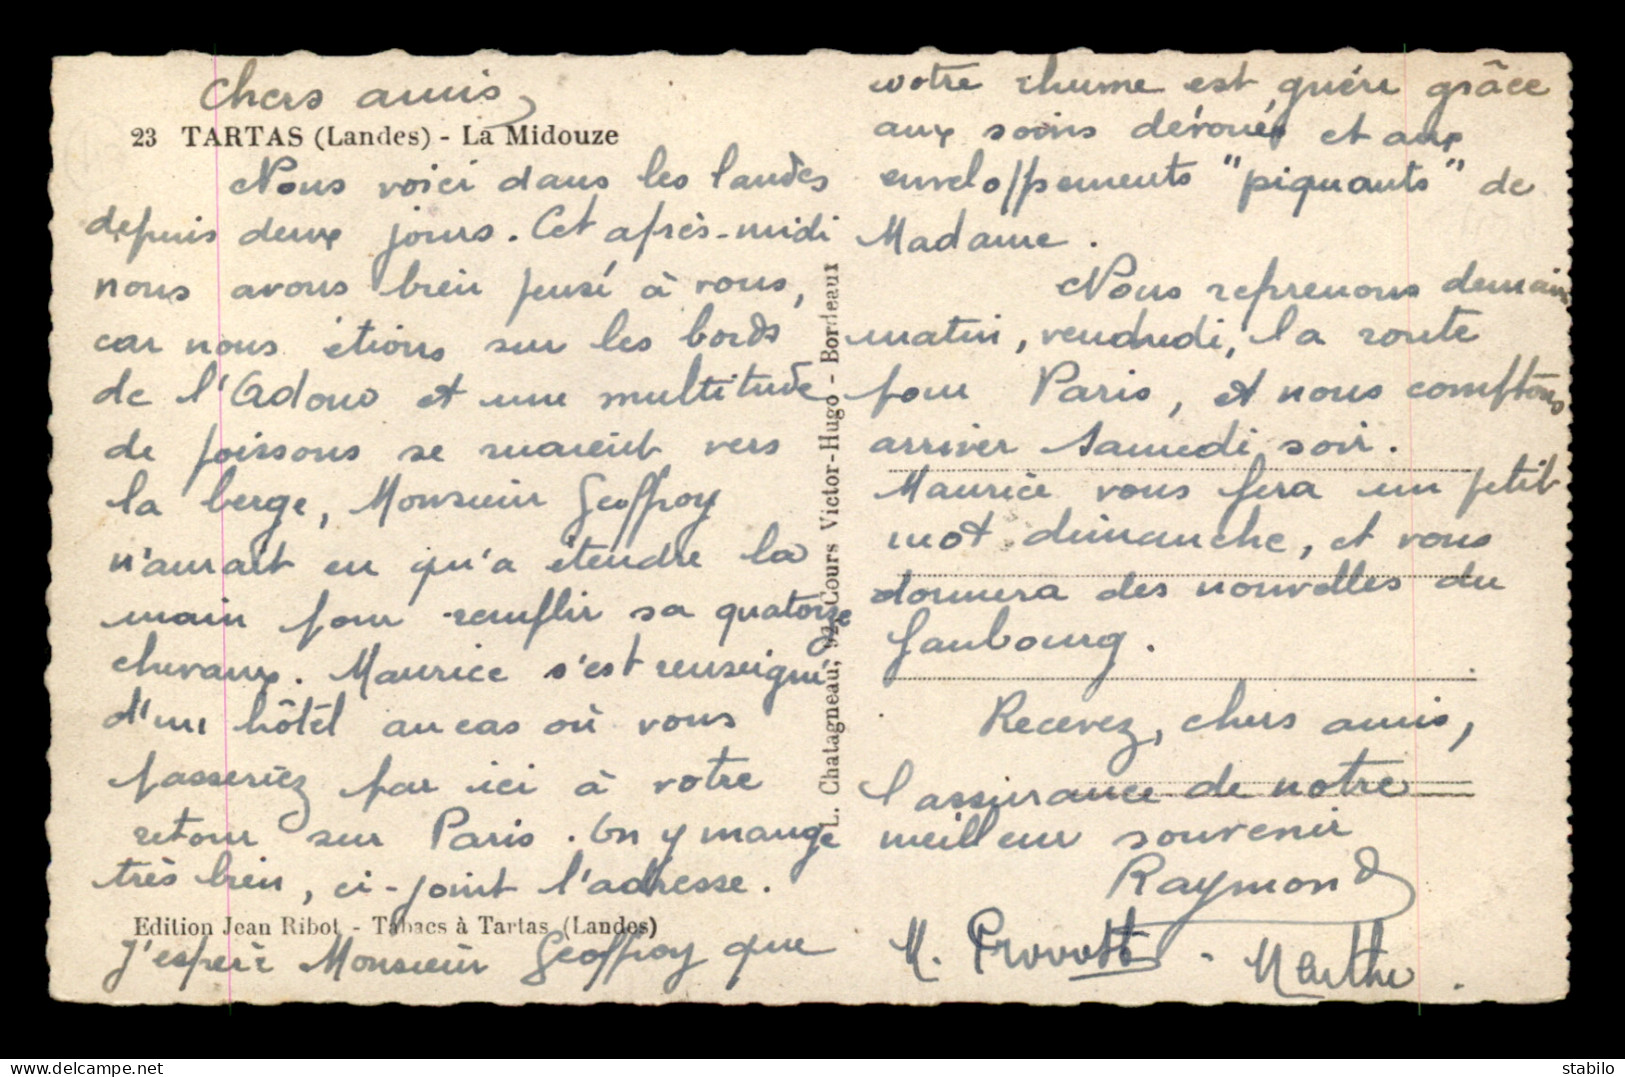 Chers amis,
23 TARTAS (Landes) - La Midouze
Nous voici dans les landes
depuis deux jours. Cet après-midi
nous avons bien pensé à vous,
car nous étions sur les bords
de l'Adour et une multitude
de poissons se ruaient vers
la berge, Monsieur Geoffroy
n'aurait eu qu'à étendre la
main pour remplir sa quatorze
chevaux. Maurice s'est renseigné
d'un hôtel au cas où vous
passeriez par ici à votre
retour sur Paris. On y mange
très bien, ci-joint l'adresse.
Edition Jean Ribot - Tabacs à Tartas (Landes)
J'espère Monsieur Geoffroy que
L. Chatagneau, 92 Cours Victor-Hugo - Bordeaux
votre rhume est guéri grâce
aux soins dévoués et aux
enveloppements "piquants" de
Madame.
Nous reprenons demain
matin, vendredi, la route
pour Paris, et nous comptons
arriver samedi soir.
Maurice vous fera un petit
mot dimanche, et vous
donnera des nouvelles du
faubourg.
Recevez, chers amis,
l'assurance de notre
meilleur souvenir
Raymond
M. Provost - Marthe.
stabilo